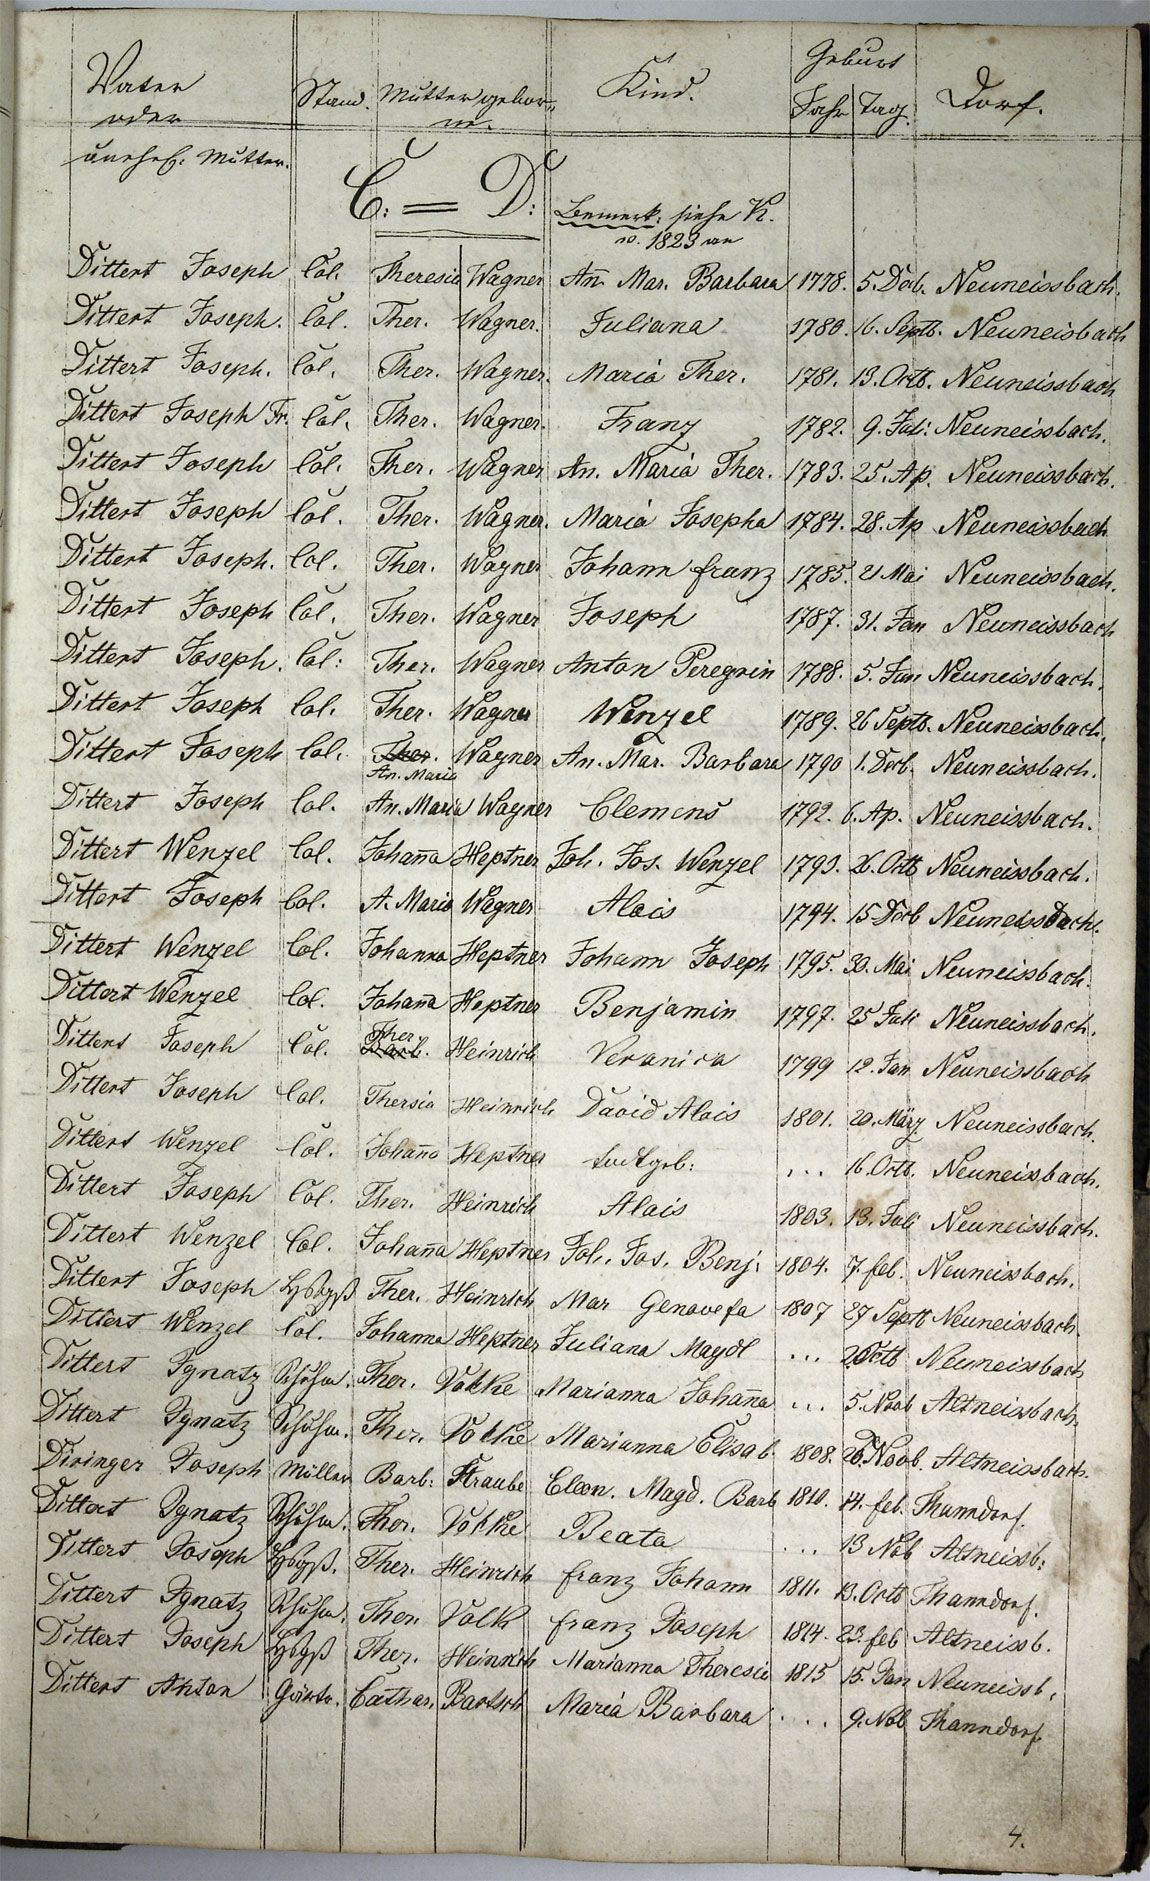 Vater oder unehel: Mutter. Stand. Mutter geborne. Kind. Geburt Jahr Tag. Dorf.
C: = D: Bemerk: siehe K.
v. 1823 an
Dittert Joseph Col. Theresia Wagner An̄ Mar. Barbara 1778. 5. Decb. Neuneissbach.
Dittert Joseph. Col. Ther. Wagner. Juliana 1780. 16. Septb. Neuneisbach
Dittert Joseph. Col. Ther. Wagner. Maria Ther. 1781. 13. Octb. Neuneissbach
Dittert Joseph Fr. Col. Ther. Wagner. Franz 1782. 9. Juli: Neuneissbach.
Dittert Joseph Col. Ther. Wagner An. Maria Ther. 1783. 25. Ap. Neuneissbach.
Dittert Joseph Col. Ther. Wagner. Maria Josepha 1784. 28. Ap Neuneissbach
Dittert Joseph. Col. Ther. Wagner Johann Franz 1785. 21 Mai Neuneissbach.
Dittert Joseph Col. Ther. Wagner Joseph 1787. 31. Jan Neuneissbach
Dittert Joseph. Col: Ther. Wagner Anton Peregrin 1788. 5. Jun Neuneissbach.
Dittert Joseph Col. Ther. Wagner Wenzel 1789. 26 Septb. Neuneissbach.
Dittert Joseph Col. Ther. Wagner An. Mar. Barbara 1790 1. Decb. Neuneissbach.
An. Maria
Dittert Joseph Col. An. Maria Wagner Clemens 1792. 6. Ap. Neuneissbach.
Dittert Wenzel Col. Johan̄a Heptner Joh. Jos. Wenzel 1793. 26. Octb Neuneissbach.
Dittert Joseph Col. A. Maria Wagner Alois 1794. 15 Decb Neuneissbach.
Dittert Wenzel Col. Johanna Heptner Johann Joseph 1795. 30. Mai Neuneissbach.
Dittert Wenzel Col. Johan̄a Heptner Benjamin 1797. 25 Juli Neuneissbach.
Ther
Dittert Joseph Col. Barb. Heinrich Veronica 1799 12. Jan Neuneissbach
Dittert Joseph Col. Thersia Heinrich David Alois 1801. 20. März Neuneissbach.
Dittert Wenzel Col. Johan̄a Heptner todtgeb: ... 16. Octb. Neuneissbach.
Dittert Joseph Col. Ther. Heinrich Alois 1803. 13. Juli Neuneissbach.
Dittert Wenzel Col. Johan̄a Heptner Joh. Jos. Benj: 1804. 7. feb. Neuneissbach.
Dittert Joseph Ther. Heinrich Mar Genovefa 1807 27 Septb Neuneissbach.
Dittert Wenzel Col. Johanna Heptner Juliana Magdl ... Octb Neuneissbach
Dittert Ignatz Schuhm. Ther. Volke Marianna Johan̄a ... 5. Novb Altneissbach.
Dittert Ignatz Schuhm. Ther. Volke Marianna Elisab 1808. 26. Novb. Altneissbach.
Diringer Joseph Müller Barb: Straube Eleon. Magd. Barb 1810. 14. feb. Thanndorf.
Dittert Ignatz Schuhm. Ther. Volke Beata ... 13 Nob Altneissb:
Dittert Joseph Ther. Heinrich Franz Johann 1811. 13. Octb Thanndorf.
Dittert Ignatz Schuhm. Ther. Volk Franz Joseph 1814. 23. feb Altneissb.
Dittert Joseph Ther. Heinrich Marianna Theresia 1815 15. Jan Neuneissb.
Dittert Anton Gärtn. Cathar. Bartsch Maria Barbara .... 9. Nob Thanndorf.
4.